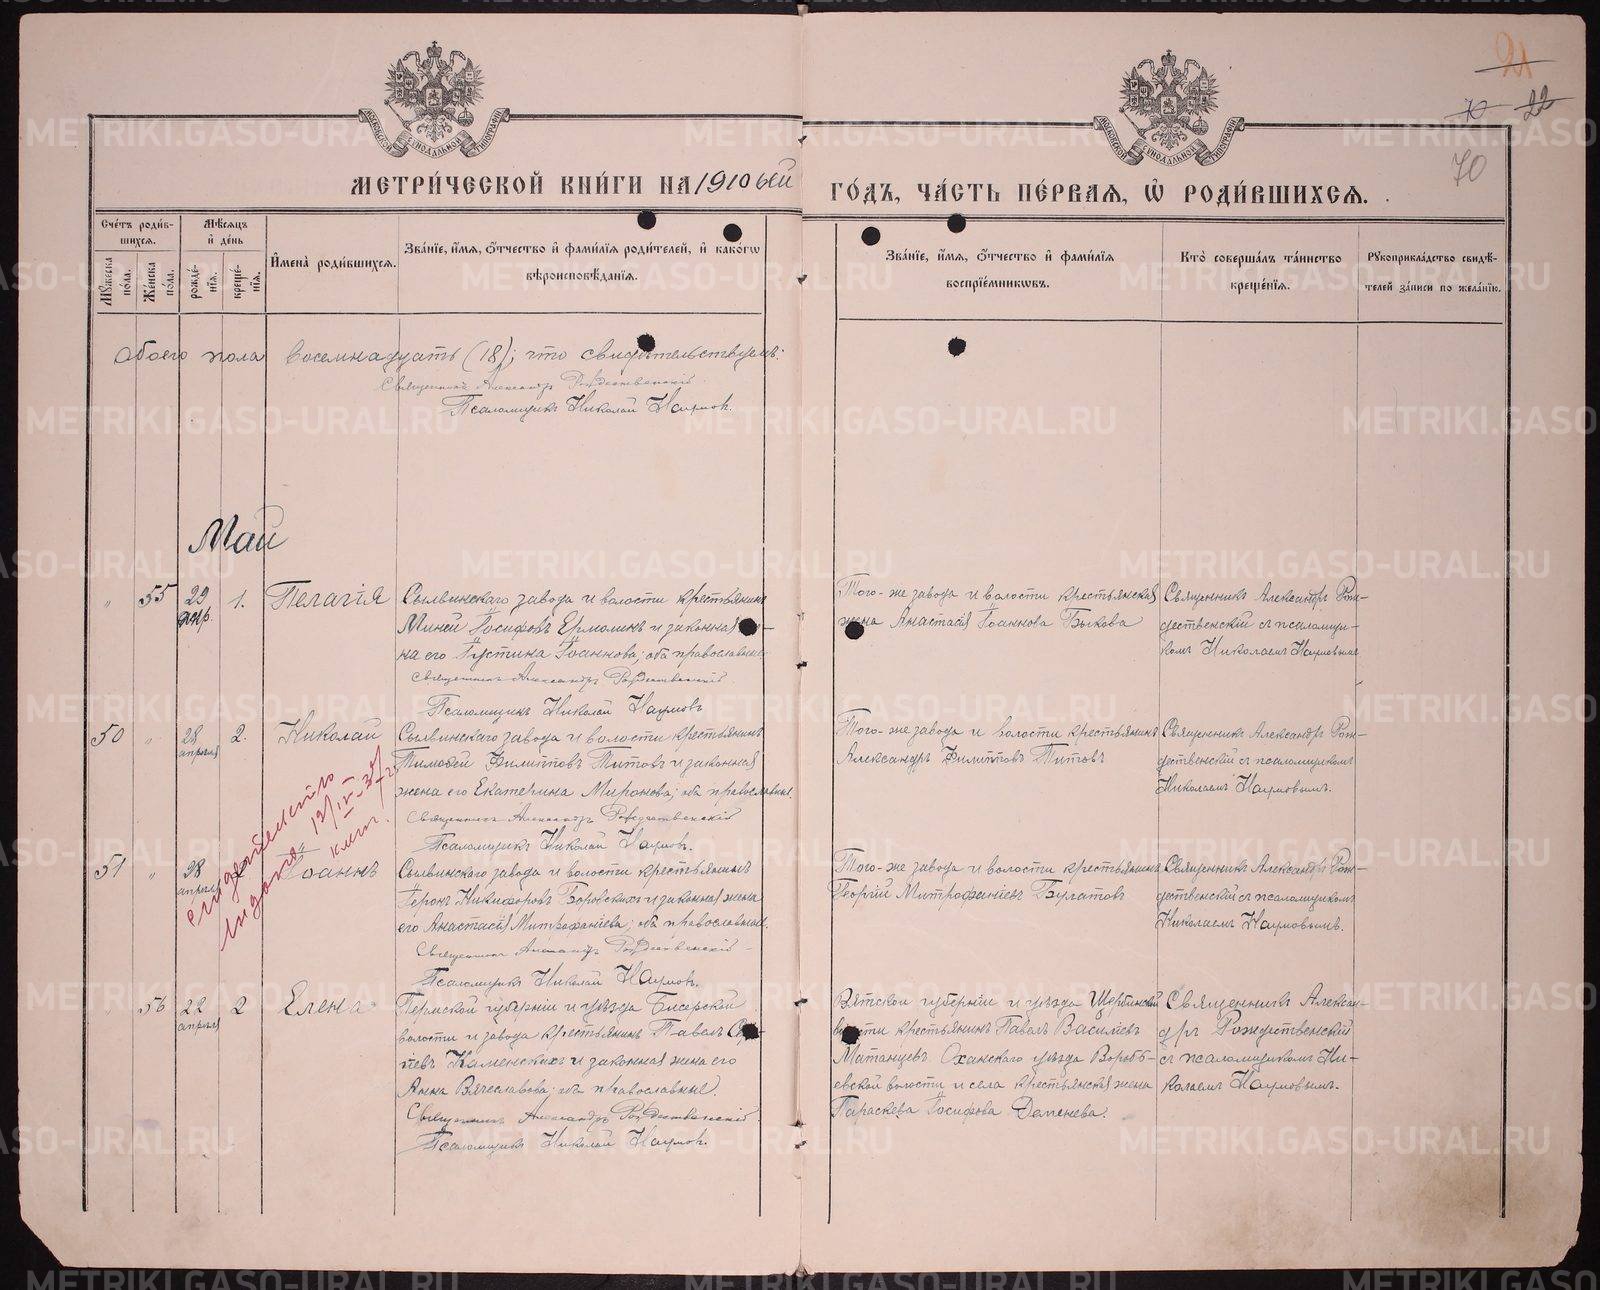 21
70 22
70
МОСКОВСКОЙ СѴНОДАЛЬНОЙ ТИПОГРАФІИ
МОСКОВСКОЙ СѴНОДАЛЬНОЙ ТИПОГРАФІИ
МЕТРИ́ЧЕСКОЙ КНИ́ГИ НА 1910 ый ГО́ДЪ, ЧА́СТЬ ПЕ́РВАѦ, Ѡ҆ РОДИ́ВШИХСѦ.
Сче́тъ роди́в-
шихсѧ.
Мꙋ́жеска по́ла.
Же́нска по́ла.
Мѣ́сѧцъ и҆ де́нь
рожде́-
нїѧ.
креще́-
нїѧ.
И҆мена̀ роди́вшихсѧ.
Зва́нїе, и҆́мѧ, ѻ҆́тчество и҆ фами́лїѧ роди́телей, и҆ како́гѡ
вѣроисповѣ́данїѧ.
Зва́нїе, и҆́мѧ, ѻ҆́тчество и҆ фами́лїѧ
воспрїе́мникѡвъ.
Кто̀ соверша́лъ та́инство
креще́нїѧ.
Рꙋкоприкла́дство свидѣ́-
телей за́писи по жела́нїю.
Обоего пола восемнадцать (18); что свидѣтельствуемъ:
Священникъ Александръ Рождественскій
Псаломщикъ Николай Наумовъ.
Май
" 55 29 апр. 1. Пелагія
Сылвинскаго завода и волости крестьянинъ
Миней Іосифовъ Ермолинъ и законная же-
на его Іустина Іоаннова; оба православные.
Священникъ Александръ Рождественскій
Псаломщикъ Николай Наумовъ
Того-же завода и волости крестьянская
жена Анастасія Іоаннова Быкова
Священникъ Александръ Рож-
дественскій съ псаломщи-
комъ Николаемъ Наумовымъ
50 " 28 апрѣля 2. Николай
Сылвинскаго завода и волости крестьянинъ
Тимоѳей Филипповъ Титовъ и законная
жена его Екатерина Миронова; оба православные.
Священникъ Александръ Рождественскій
Псаломщикъ Николай Наумовъ.
Того-же завода и волости крестьянинъ
Александръ Филипповъ Титовъ
Священникъ Александръ Рож-
дественскій съ псаломщикомъ
Николаемъ Наумовымъ.
51 " 28 апрѣля 2 Іоаннъ
Сылвинскаго завода и волости крестьянинъ
Геронъ Никифоровъ Боровскихъ и законная жена
его Анастасія Митрофаніева; оба православные.
Священникъ Александръ Рождественскій
Псаломщикъ Николай Наумовъ.
Того-же завода и волости крестьянинъ
Георгій Митрофаніевъ Булатовъ
Священникъ Александръ Рож-
дественскій съ псаломщикомъ
Николаемъ Наумовымъ.
" 56 22 апрѣля 2 Елена
Пермской губерніи и уѣзда Бисерской
волости и завода крестьянинъ Павелъ
Каменскихъ и законная жена его
Анна Вячеславова; оба православные.
Священникъ Александръ Рождественскій
Псаломщикъ Николай Наумовъ.
Вятской губерніи и уѣзда Щербинской
волости крестьянинъ Павелъ Василіевъ
Матанцевъ Оханскаго уѣзда Воробь-
евской волости и села крестьянская жена
Параскева Іосифова Деменева.
Священникъ Алексан-
дръ Рождественскій
съ псаломщикомъ Ни-
колаемъ Наумовымъ.
METRIKI.GASO-URAL.RU